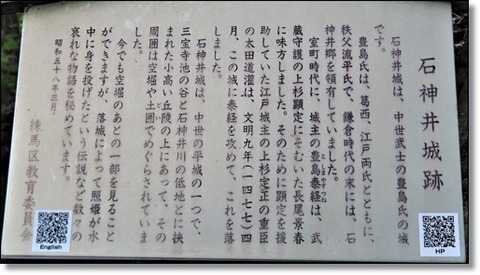 石神井城跡
石神井城は、中世武士の豊島氏の城
です。
豊島氏は、葛西、江戸両氏とともに、
秩父流平氏で、鎌倉時代の末には、石
神井郷を領有していました。
室町時代に、城主の豊島泰経は、武
蔵守護の上杉顕定にそむいた長尾景春
に味方しました。そのために顕定を援
助していた江戸城主の上杉定正の重臣
の太田道灌は、文明九年(一四七七)四
月、この城に泰経を攻めて、これを落
しました。
石神井城は、中世の平城の一つで、
三宝寺池の谷と石神井川の低地とに挟
まれた小高い丘陵の上にあって、その
周囲は空堀や土囲でめぐらされていま
した。
今でも空堀のあとの一部を見ること
ができますが、落城によって照姫が水
中に身を投げたという伝説など数々の
哀れな物語を秘めています。
昭和五十八年三月
練馬区教育委員会
English
HP